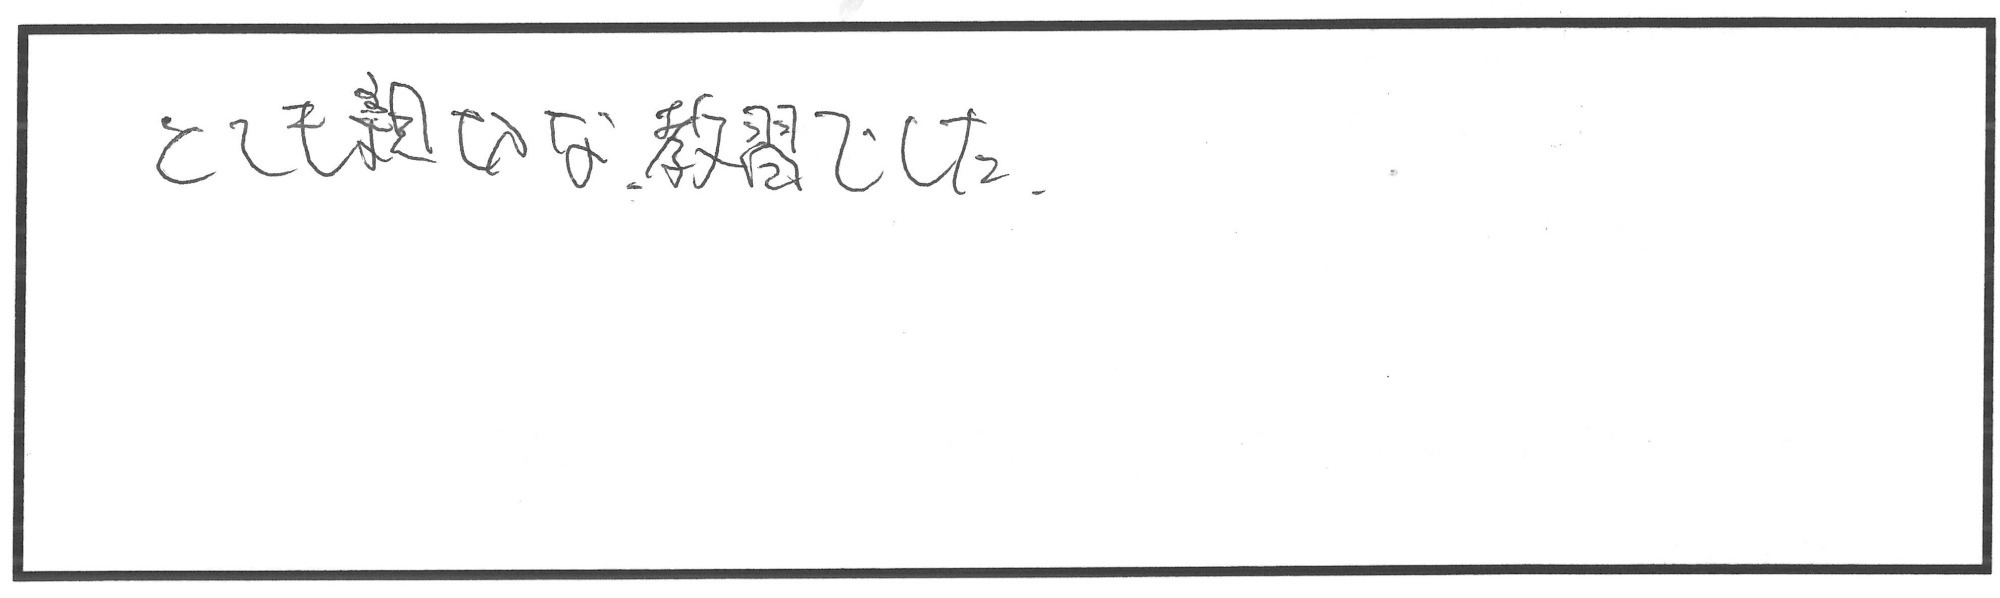 とても親切な教習でした.